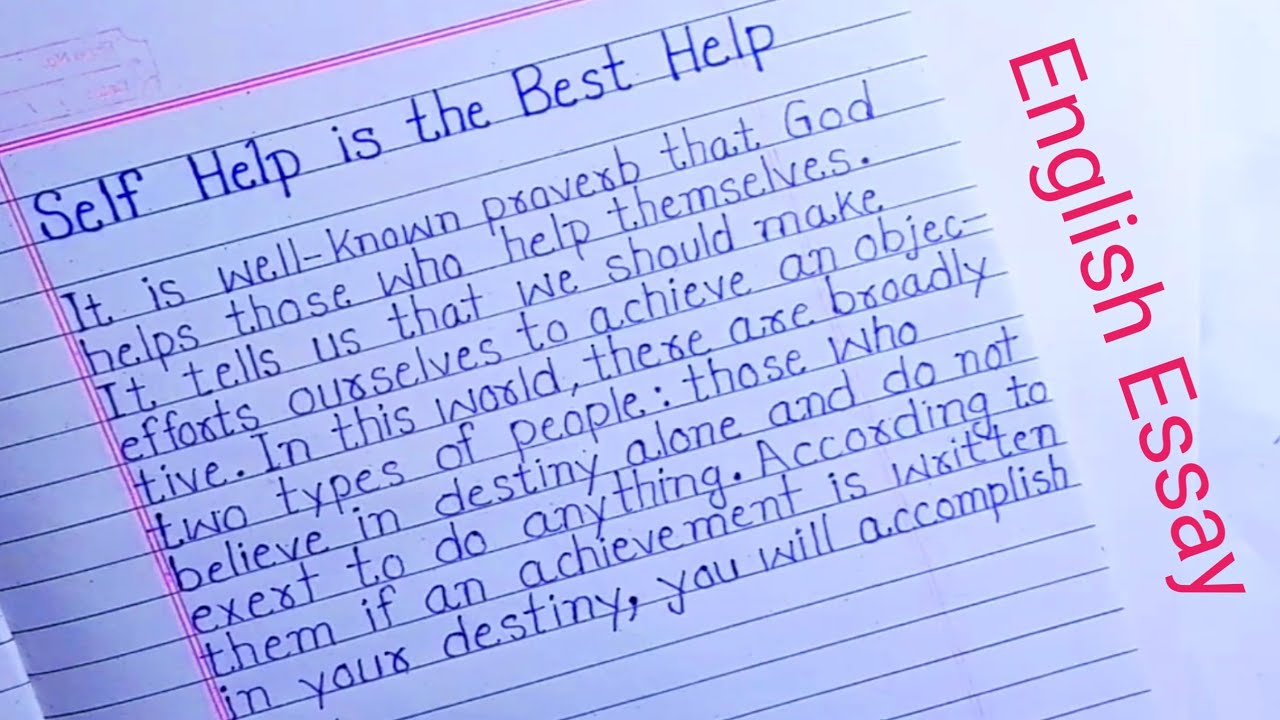 Self Help is the Best Help
It is well-known proverb that God
helps those who help themselves.
It tells us that we should make
efforts ourselves to achieve an objec-
tive. In this world, there are broadly
two types of people: those who
believe in destiny alone and do not
exert to do anything. According to
them if an achievement is written
in your destiny, you will accomplish
English Essay